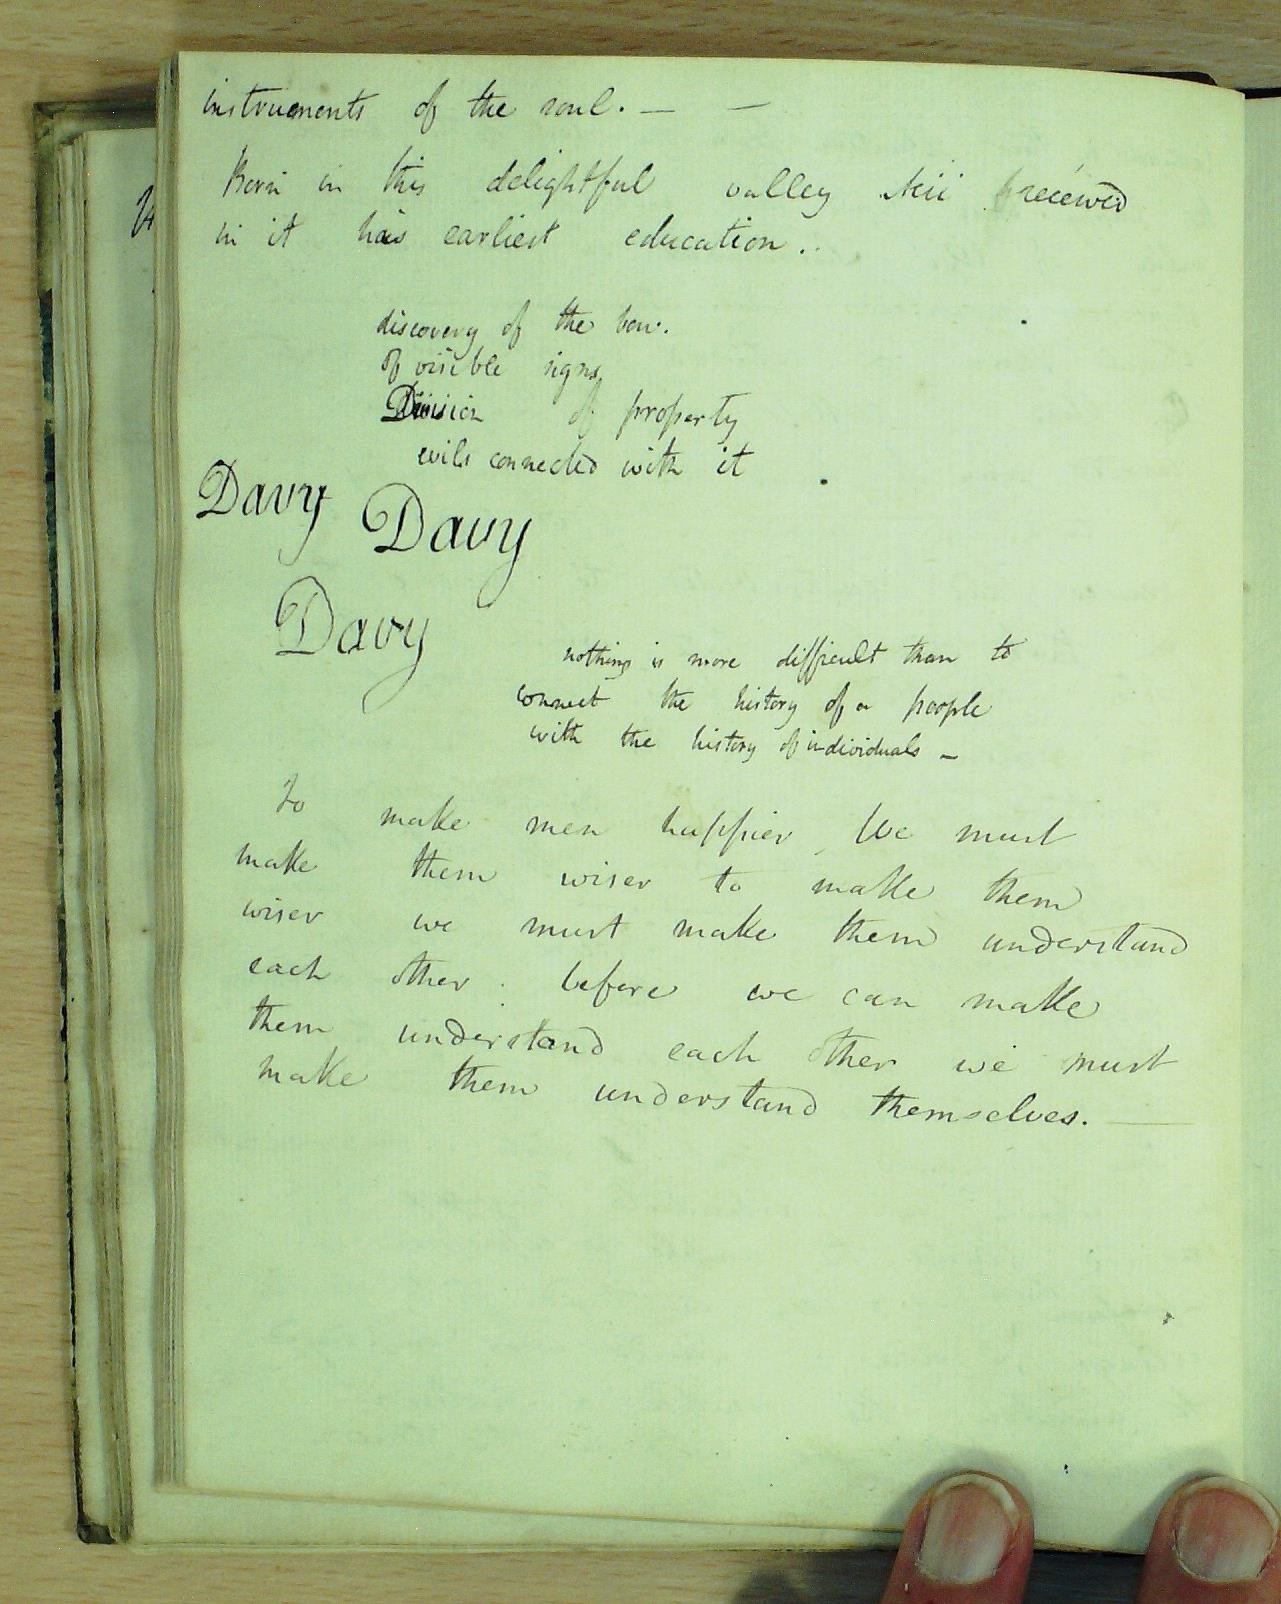 instruments of the soul. — —
Born in this delightful valley received
in it his earliest education..
discovery of the bow.
of visible signs
Division of property
evils connected with it
Davy Davy
Davy
nothing is more difficult than to
connect the history of a people
with the history of individuals —
To make men happier We must
make them wiser to make them
wiser we must make them understand
each other. before we can make
them understand each other we must
make them understand themselves. —